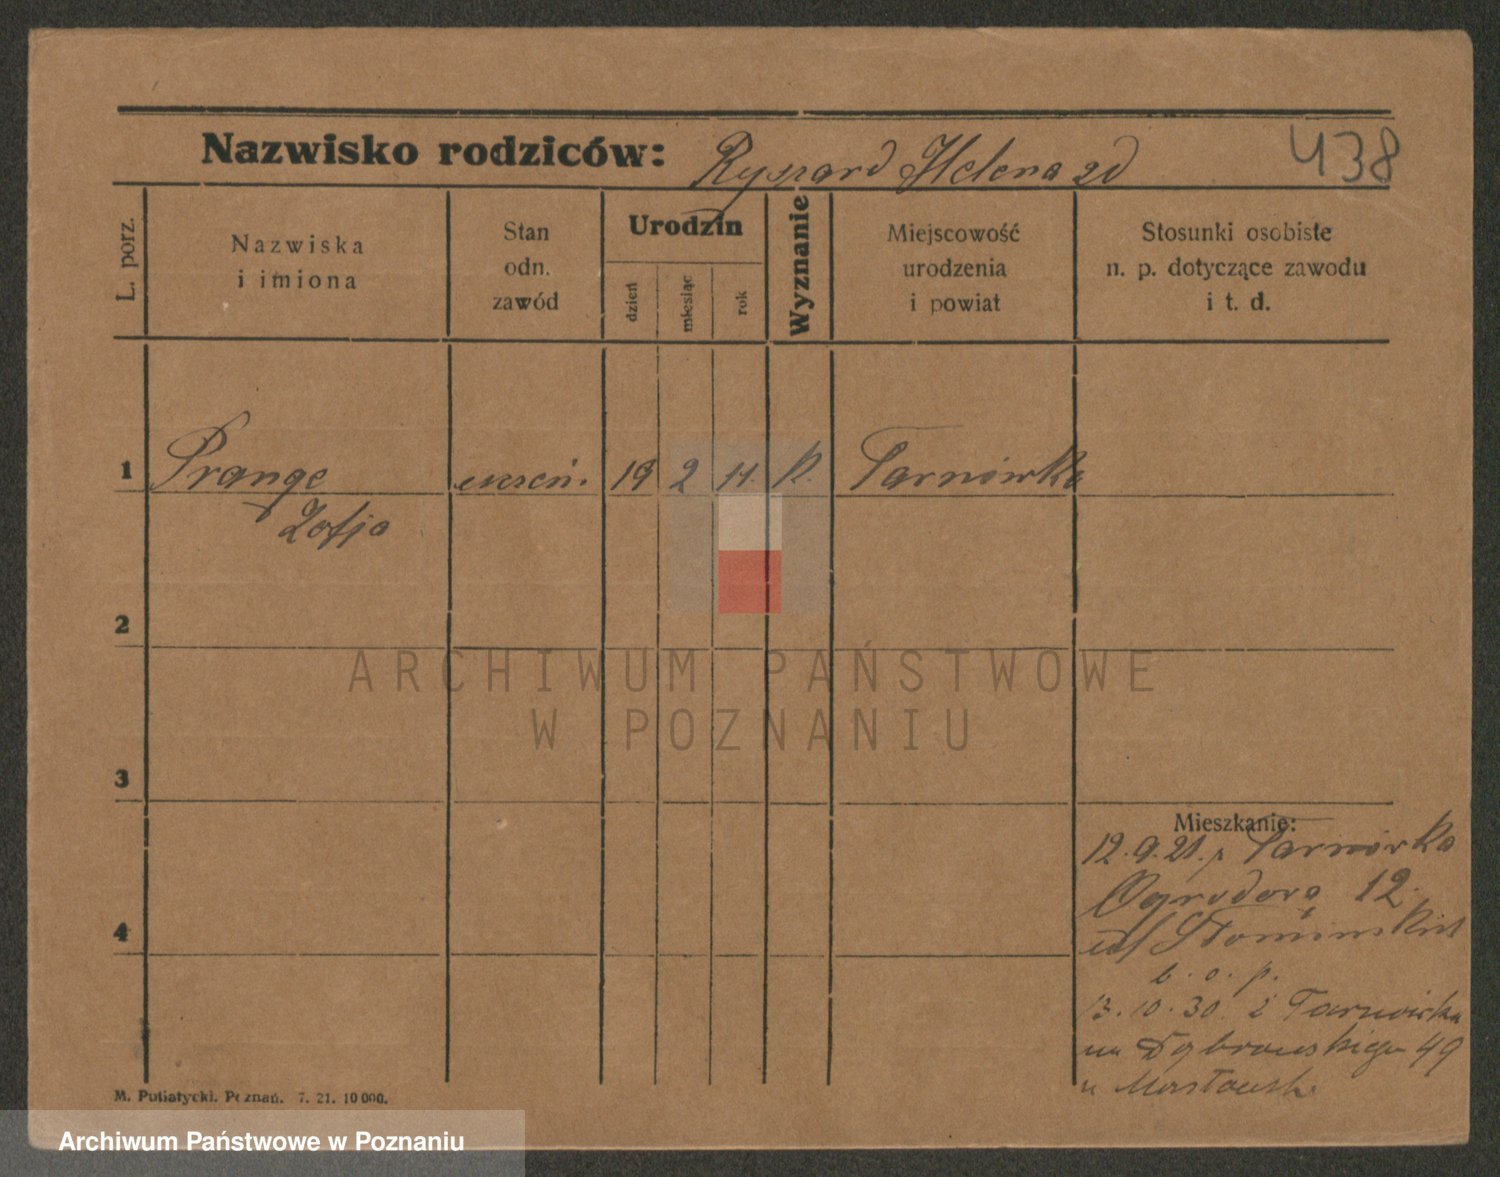 Nazwisko rodziców: Ryszard Helena zd
438
L. porz.
Nazwiska
i imiona
Stan
odn.
zawód
Urodzin
dzień
miesiąc
rok
Wyznanie
Miejscowość
urodzenia
i powiat
Stosunki osobiste
n. p. dotyczące zawodu
i t. d.
1 Prange uczeń. 19 2 11. k. Tarnówka
Zofja
2
ARCHIWUM PAŃSTWOWE
W POZNANIU
3
Mieszkanie:
12.9.21. Tarnówka
Ogrodowa 12.
b. o. p.
13.10.30. z Tarnówka
na Dąbrowskiego 49
u
4
M. Putiatycki. Poznań. 7. 21. 10 000.
Archiwum Państwowe w Poznaniu